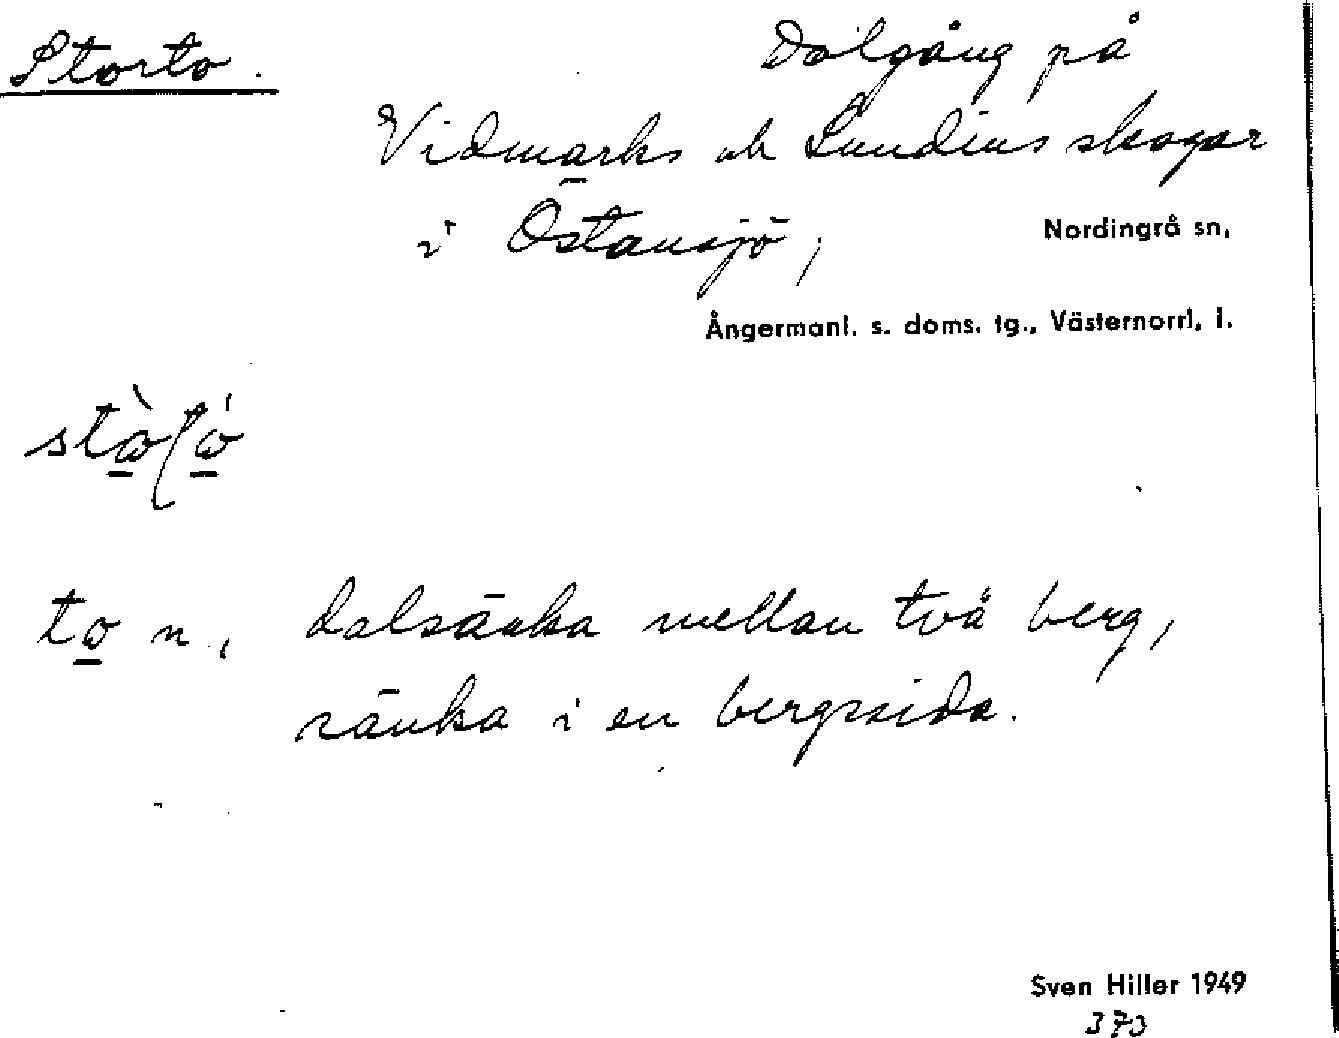 Storto.
Dalgång på
Vidmarks och Lundins skogar
i Östansjö,
Nordingrå sn,
Ångermanl. s. doms. tg., Västernorrl. l.
to n, dalsänka mellan två berg,
sänka i en bergssida.
Sven Hiller 1949
373